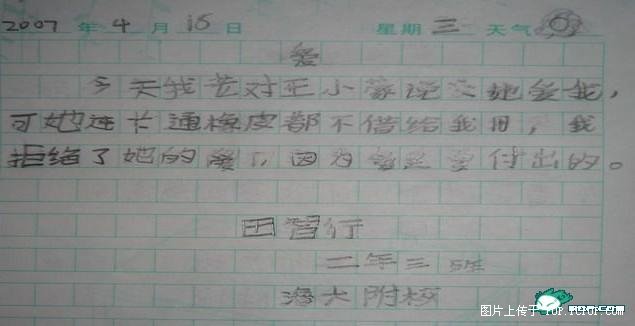 2007 年 4 月 18 日 星期 三 天气
爱
今天我芒对王小蒙说她爱我，
可她连卡通橡皮都不借给我用，我
拒绝了她的爱，因为爱是要付出的。
田智行
二年三班
海大附校
图片上传于 TOP.TC1OF.com